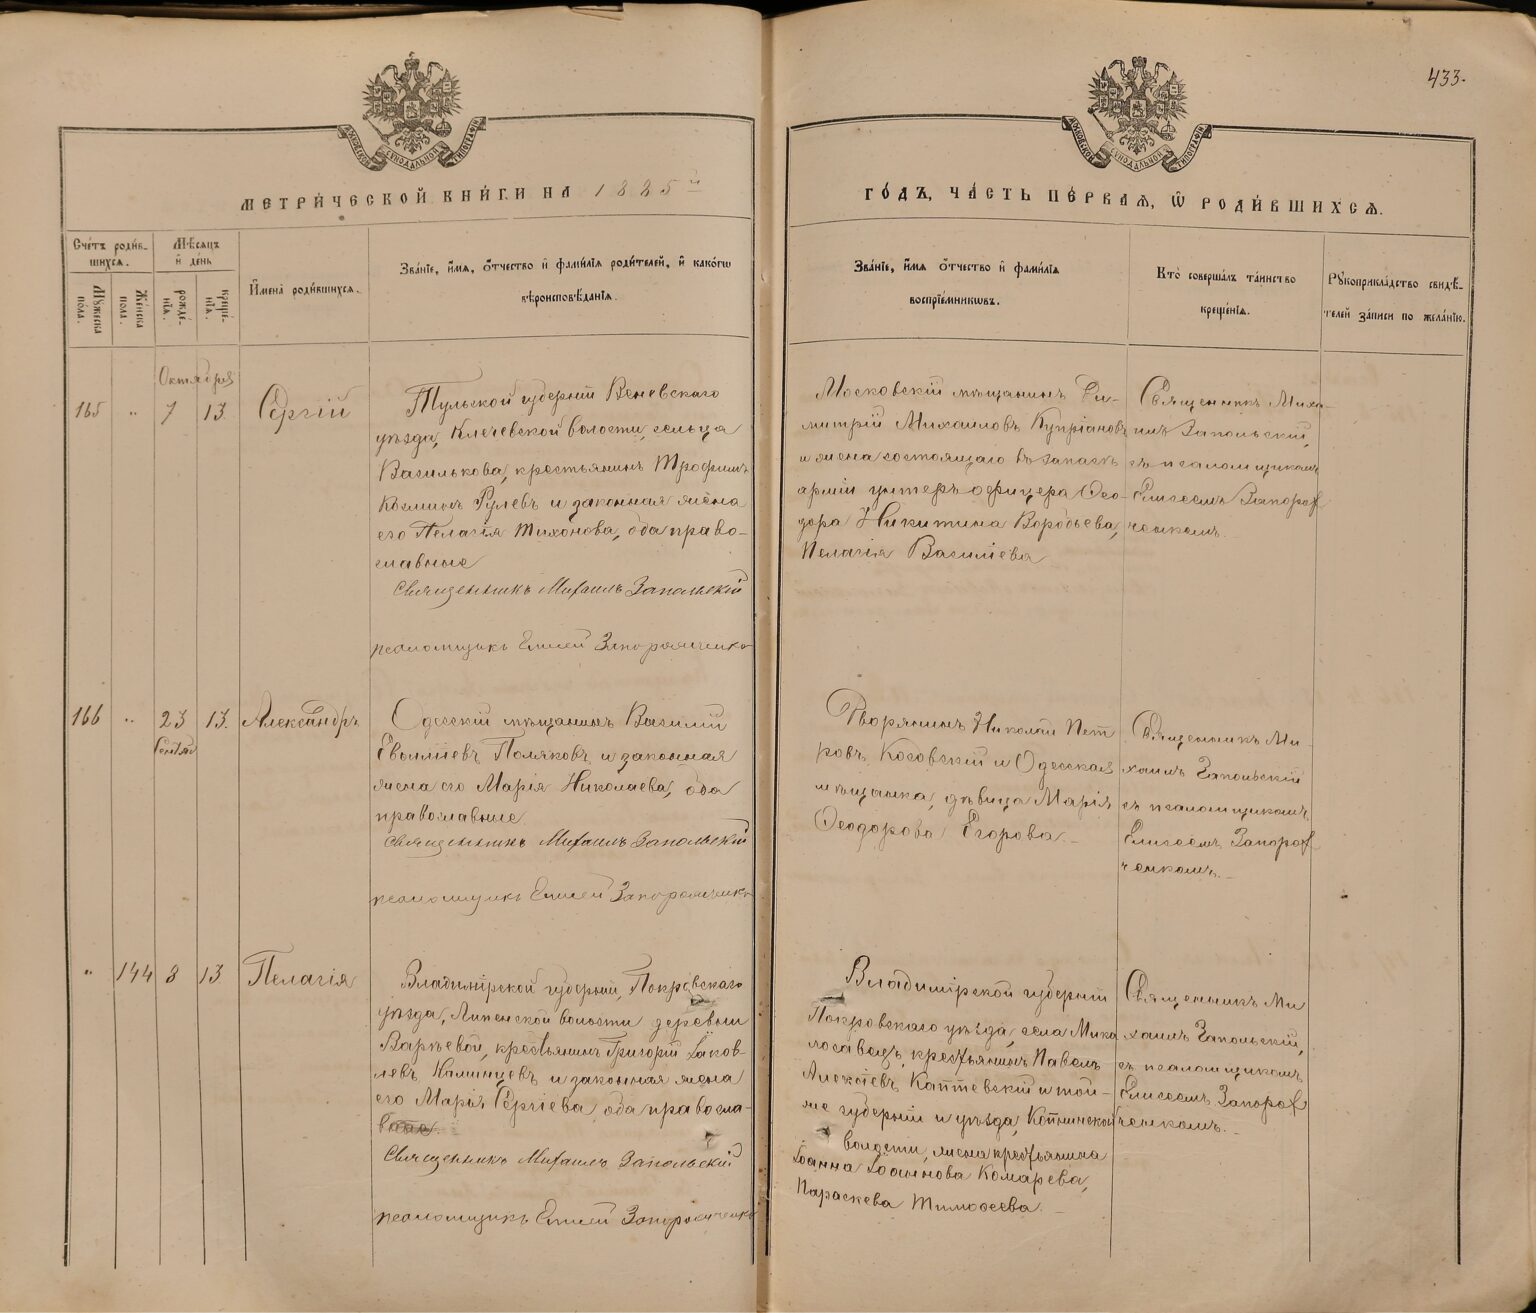 433.
МОСКОВСКОЙ СУНОДАЛЬНОЙ ТИПОГРАФІИ
МОСКОВСКОЙ СУНОДАЛЬНОЙ ТИПОГРАФІИ
МЕТРИ́ЧЕСКОЙ КНИ́ГИ НА 1885й
ГО́ДЪ, ЧА́СТЬ ПЕ́РВАѦ, Ѿ РОДИ́ВШИХСѦ.
Сче́тъ роди́в-
шихсѧ.
Мꙋжеска по́ла.
Же́нска пола.
Мѣ́сѧцъ
и҆ де́нь
рожде́-
нїѧ.
креще́-
нїѧ.
И҆мена̀ роди́вшихсѧ.
Зва́нїе, и҆́мѧ, ѻ҆́тчество и҆ фами́лїѧ роди́телей, и҆ како́гѡ
вѣроисповѣ́данїѧ.
Зва́нїе, и҆́мѧ ѻ҆́тчество и҆ фами́лїѧ
воспрїе́мникѡвъ.
Кто̀ соверша́лъ та́инство
креще́нїѧ.
Рꙋкоприкла́дство свидѣ́-
телей за́писи по жела́нїю.
Октября
165 " 7 13. Сергій
Тульской губерніи Веневскаго
уѣзда, Клечевской волости, сельца
Василькова, крестьянинъ Трофимъ
Козминъ Рулевъ и законная жена
его Пелагія Тихонова, оба право-
славные
Священникъ Михаилъ Запольскій
псаломщикъ Елисей Запорожченко
Московскій мѣщанинъ Ди-
митрій Михаиловъ Купріановъ
и жена состоящаго въ запасѣ
арміи унтеръ-офицера Ѳео-
дора Никитина Воробьева,
Пелагія Васильева
Священникъ Миха-
илъ Запольскій,
съ псаломщикомъ
Елисеемъ Запорож
ченкомъ.
166 " 23 13. Александръ
Сентяб
Одесскій мѣщанинъ Василій
Евѳиміевъ Поляковъ и законная
жена его Марія Николаева, оба
православные.
Священникъ Михаилъ Запольскій
псаломщикъ Елисей Запорожченко
Дворянинъ Николай Пет
ровъ Косовскій и Одесская
мѣщанка, дѣвица Марія
Ѳеодорова Егорова.
Священникъ Ми-
хаилъ Запольскій
съ псаломщикомъ
Елисеемъ Запорож
ченкомъ.
" 144 8 13 Пелагія
Владимірской губерніи, Покровскаго
уѣзда, Липенской волости деревни
Варѣевой, крестьянинъ Григорій Іаков-
левъ и законная жена
его Марія Сергіева, оба правосла-
вные.
Священникъ Михаилъ Запольскій
псаломщикъ Елисей Запорожченко
Владимірской губерніи
Покровскаго уѣзда, села
крестьянинъ Павелъ
Алексѣевъ Каптевскій и той-
же губерніи и уѣзда,
волости, жена крестьянина
Іоанна Іоаннова Комарева,
Параскева Тимоѳеева.
Священникъ Ми
хаилъ Запольскій,
съ псаломщикомъ
Елисеемъ Запорож
ченкомъ.